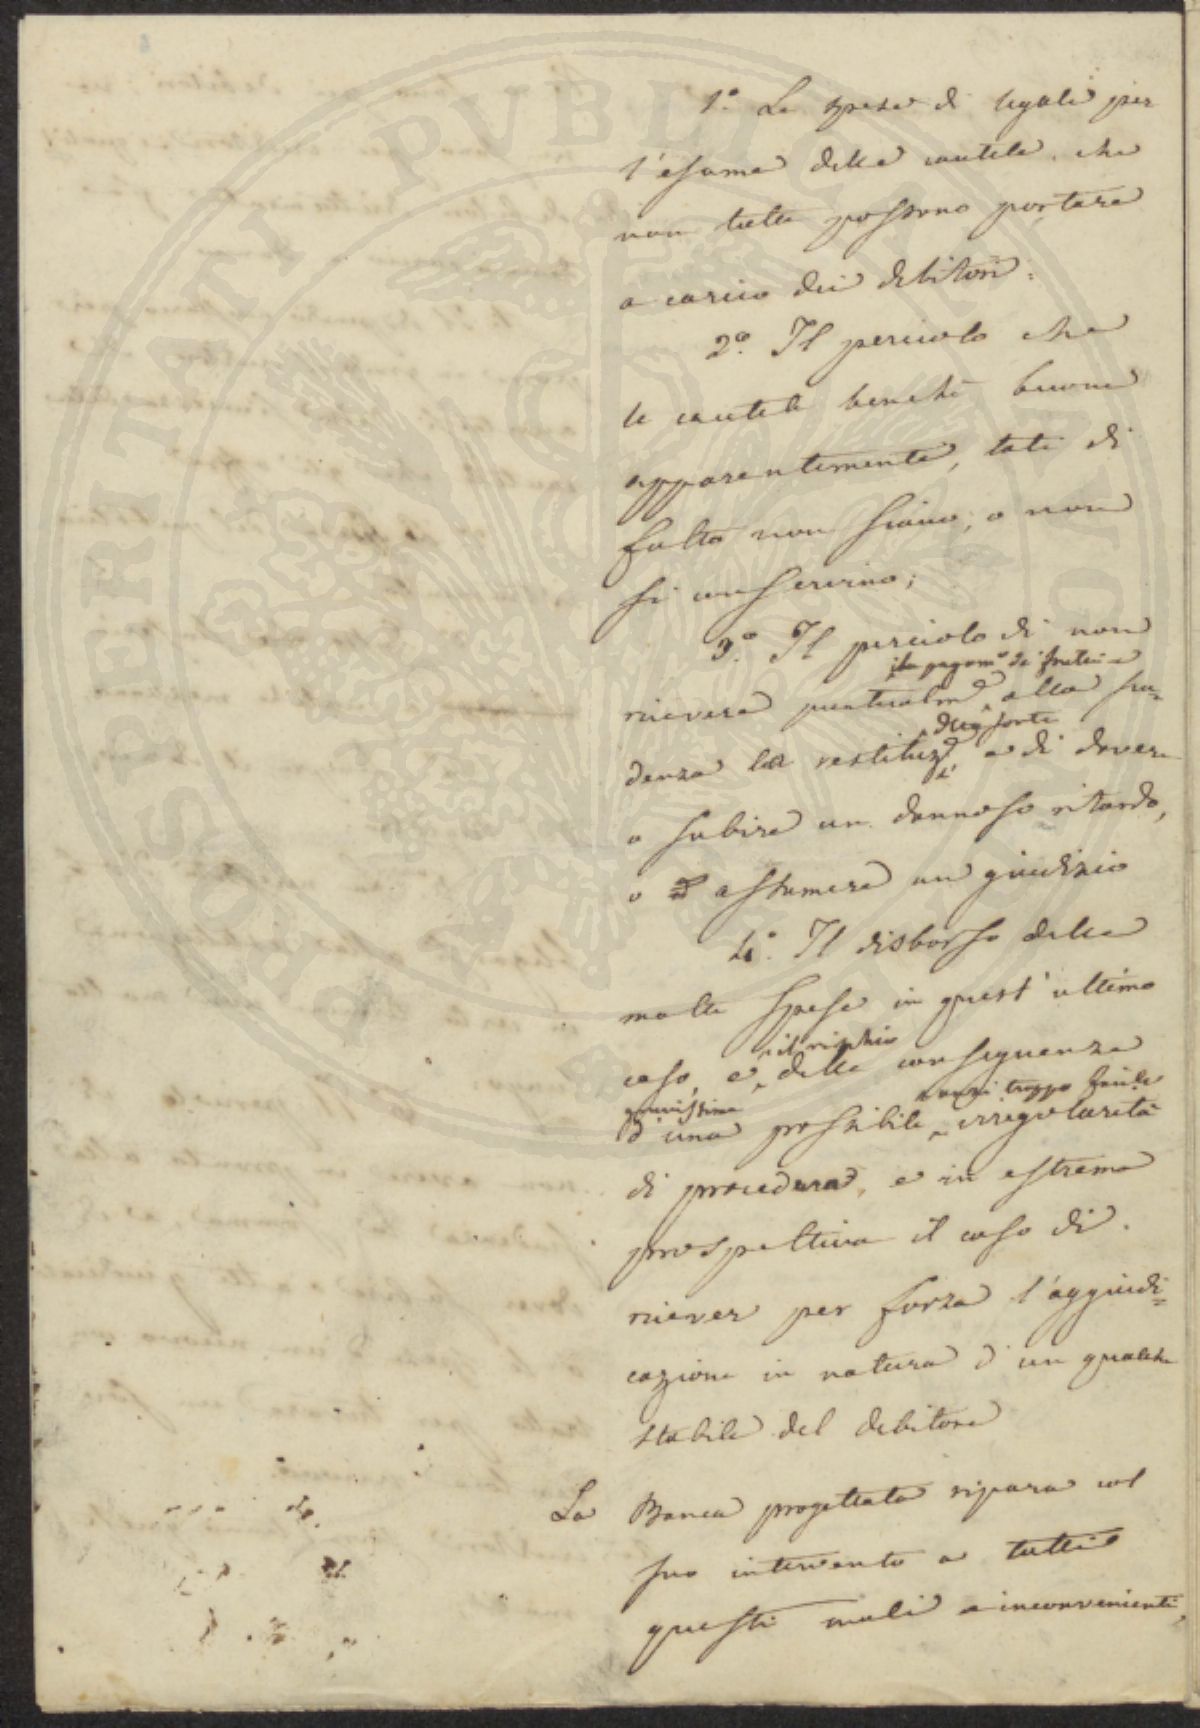 1.° Le spese di legali per
l'esame delle cautele che
non tutte possono portare
a carico dei debitori:
2.° Il pericolo che
le cautele benché buone
apparentemente, tali di
fatto non siano, o non
si conservino;
3.° Il pericolo di non
il pagam.° de' frutti e
ricevere puntualm.e alla sca=
della sorte
denza la restituz.e, e di dovere
o subire un dannoso ritardo,
o assumere un giudizio
4.° Il disborso delle
molte spese in quest'ultimo
il rischio
caso, e delle conseguenze
gravissime anzi troppo facile
d'una possibile irregolarità
di procedura, e in estrema
prospettiva il caso di
ricever per forza l'aggiudi=
cazione in natura d'un qualche
stabile del debitore
La Banca progettata ripara col
suo intervento a tutti
questi mali e inconvenienti,
POSPERITATI PVBLICAE